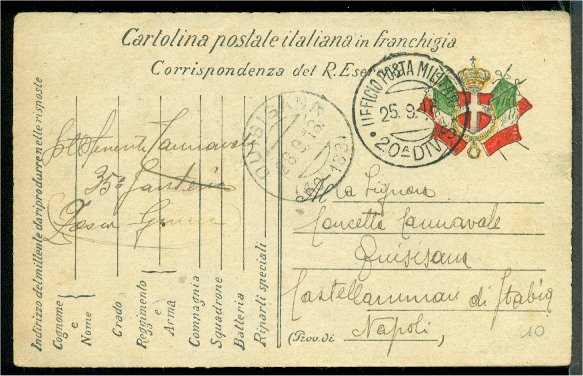 Cartolina postale italiana in franchigia
Corrispondenza del R. Eser
UFFICIO POSTA MILITARE
25.9.16
20ª DIV
QUISISANA
28.9.16
Indirizzo del mittente da riprodurre nelle risposte
Cognome e Nome
Grado
Reggimento e Arma
Compagnia
Squadrone
Batteria
Riparti speciali
Sottotenente Cannavale
35º Fanteria
Alla Signora
Concetta Cannavale
Quisisana
Castellammare di Stabia
(Prov. di Napoli
10